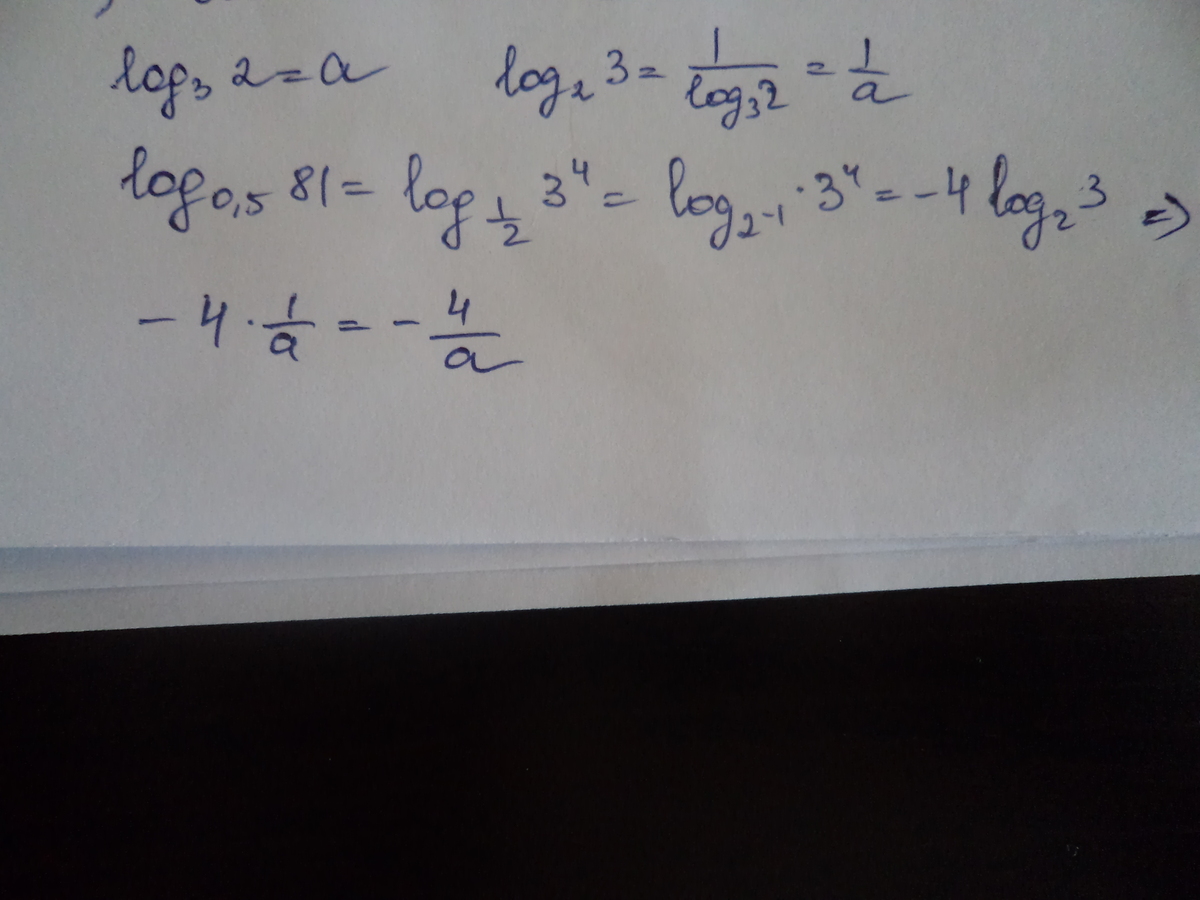 log₃ 2 = a   log₂ 3 = 1/log₃2 = 1/a
log₀,₅ 81 = log_{1/2} 3⁴ = log_{2⁻¹} · 3⁴ = -4 log₂ 3 ⇒
- 4 · 1/a = - 4/a